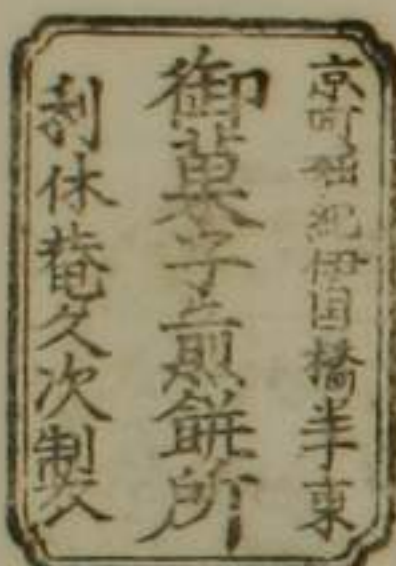 京町堀紀伊国橋半丁東
御菓子上煎餅所
利休菴久次製